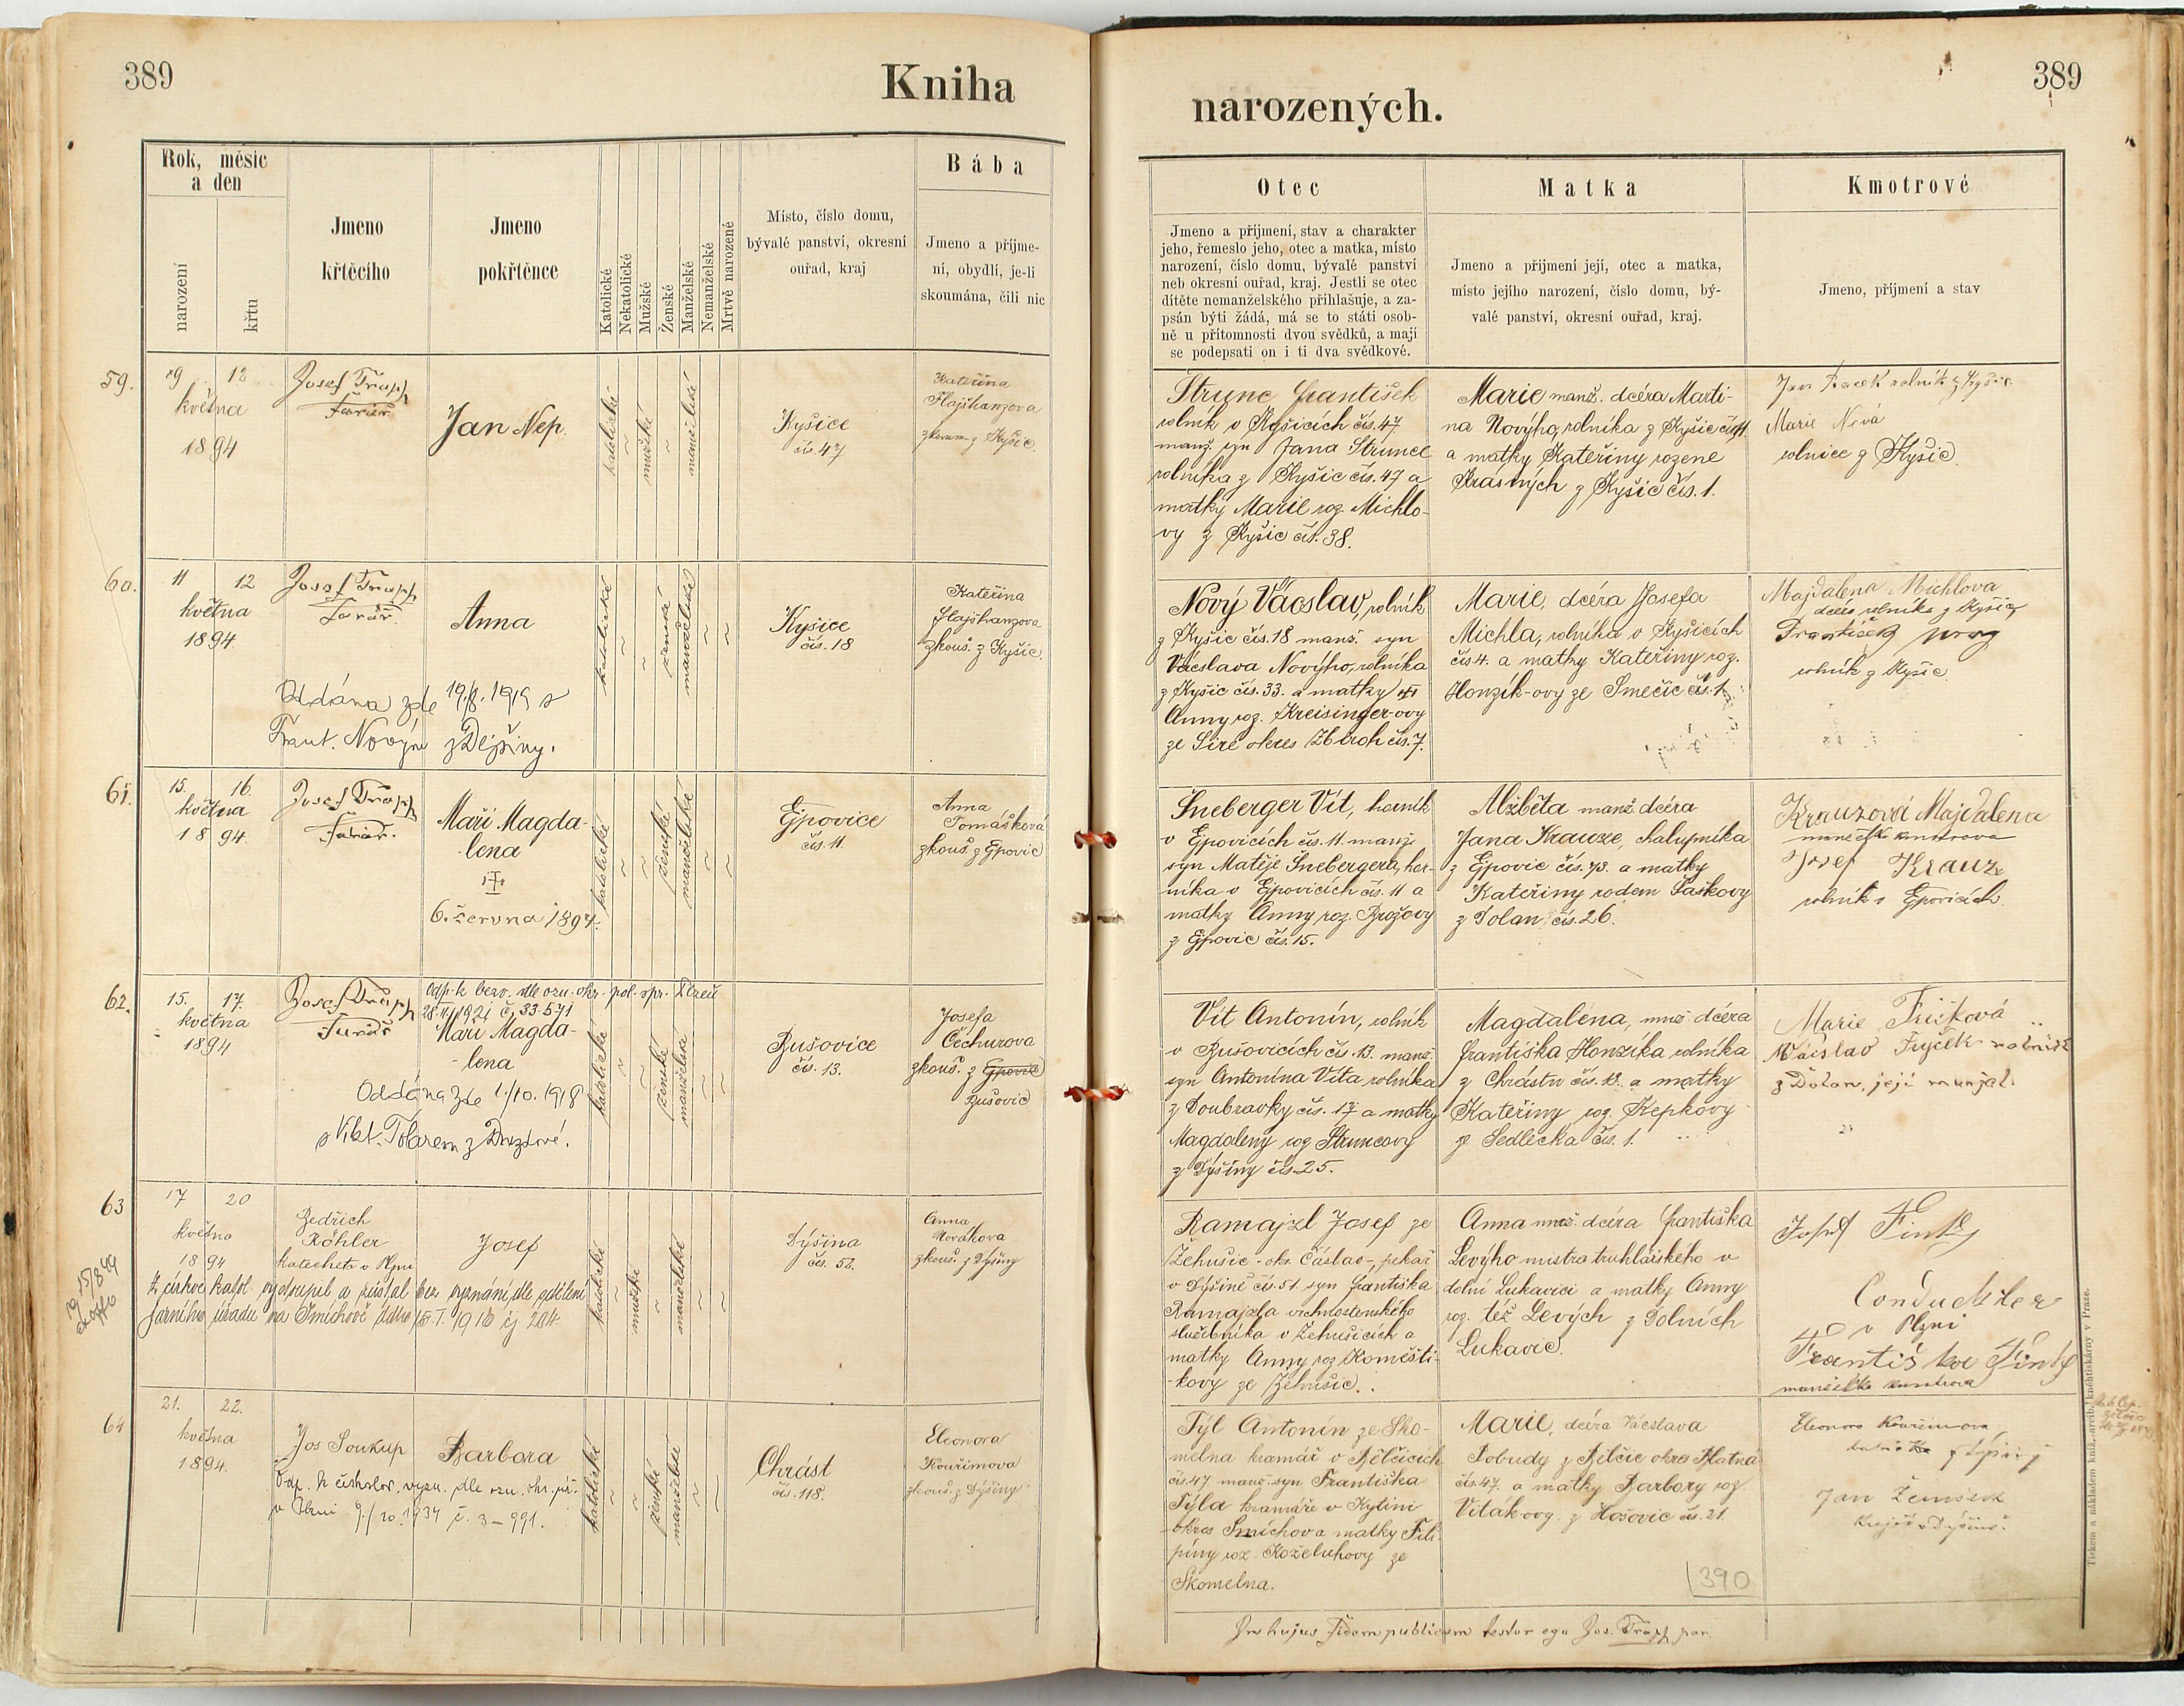 389
Kniha
Rok, měsíc
a den
narození
křtu
Jmeno
křtěcího
Jmeno
pokřtěnce
Katolické
Nekatolické
Mužské
Ženské
Manželské
Nemanželské
Mrtvě narozené
Místo, číslo domu,
bývalé panství, okresní
ouřad, kraj
Bába
Jmeno a příjme-
ní, obydlí, je-li
skoumána, čili nic
59.
9 12
května
1894
Josef Trapp
Farář
Jan Nep.
katolické
mužské
manželské
Kyšice
čís. 47
Kateřina
Hajšhanzova
z Kyšic.
60.
11 12
května
1894
Josef Trapp
Farář
Anna
katolické
ženské
manželské
Kyšice
čís. 18
Kateřina
Hajšhanzova
zkouš. z Kyšic.
Oddána zde 19./8. 1919 s
Frant. Novým z Dejšiny.
61.
15. 16.
května
1894.
Josef Trapp
Farář.
Maří Magda-
lena
6. června 1894.
katolické
ženské
manželské
Ejpovice
čís. 11.
Anna
Tomášková
zkouš. z Ejpovic
62.
15. 17.
května
1894
Josef Trapp
Farář
Odp. k bezv. dle ozn. okr. pol. spr. Plzeň
1921 č. 33571
Maří Magda-
-lena
Oddána zde 1./10. 1918
s Vikt. Tolarem z Druztové.
katolické
ženské
manželské
Bušovice
čís. 13.
Josefa
Čechurova
zkouš. z Ejpovic
Bušovic
63
17 20
května
1894
Bedřich
Röhler
katecheta v Plzni
Josef
katolické
mužské
manželské
Dýšina
čís. 52.
Anna
Novákova
zkouš. z Dýšiny
Z církve katol. vystoupil a zůstal bez vyznání, dle sdělení
farního úřadu na Smíchově ddto 15. I. 1918 čj 204
64
21. 22.
května
1894.
Jos Soukup
Barbora
Odp. k českoslov. vyzn. dle ozn. okr. úř.
v Plzni 9./10. 1934 č. 3-991.
katolické
ženské
manželské
Chrást
čís. 118.
Eleonora
Kouřimova
zkouš. z Dýšiny
narozených.
389
Otec
Matka
Kmotrové
Jmeno a příjmení, stav a charakter
jeho, řemeslo jeho, otec a matka, místo
narození, číslo domu, bývalé panství
neb okresní ouřad, kraj. Jestli se otec
dítěte nemanželského přihlašuje, a za-
psán býti žádá, má se to státi osob-
ně u přítomnosti dvou svědků, a mají
se podepsati on i ti dva svědkové.
Jmeno a příjmení její, otec a matka,
místo jejího narození, číslo domu, bý-
valé panství, okresní ouřad, kraj.
Jmeno, příjmení a stav
Štrunc František
rolník v Kyšicích čís. 47
manž. syn Jana Štrunce
rolníka z Kyšic čís. 47 a
matky Marie roz. Michlo-
vy z Kyšic čís. 38.
Marie manž. dcéra Marti-
na Novýho, rolníka z Kyšic čís. 11
a matky Kateřiny rozene
Krásných z Kyšic čís. 1.
rolník z Kyšic.
Marie Nová
rolnice z Kyšic.
Nový Václav, rolník
z Kyšic čís. 18 manž. syn
Václava Novýho, rolníka
z Kyšic čís. 33. a matky
Anny roz. Kreisinger-ovy
ze Siré okres Zbiroh čís. 7.
Marie, dcéra Josefa
Michla, rolníka v Kyšicích
čís 4. a matky Kateřiny roz.
Honzík-ovy ze Smečic čís. 1.
Majdalena Michlova
dcera rolníka z Kyšic
František
rolník z Kyšic
Šneberger Vít, horník
v Ejpovicích čís. 11. manž.
syn Matěje Šnebergera, hor-
níka v Ejpovicích čís. 11 a
matky Anny, roz. Brožovy
z Ejpovic čís. 15.
Alžběta manž. dcéra
Jana Krauze, chalupníka
z Ejpovic čís. 73. a matky
Kateřiny rodem Šaškovy
z Dolan čís. 26.
Krauzová Majdalena
manželka kmotrova
Josef Krauz
rolník v Ejpovicích.
Vít Antonín, rolník
v Bušovicích čís. 13. manž.
syn Antonína Víta rolníka
z Doubravky čís. 17 a matky
Magdaleny roz Štruncovy
z Dýšiny čís. 25.
Magdalena, manž. dcéra
Františka Honzíka rolníka
z Chrástu čís. 13. a matky
Kateřiny roz. Kepkovy
ze Sedlecka čís. 1.
Marie Fričková
Václav Fryček rolník
z Dolan, její manžel.
Ramajzl Josef ze
Žehušic okr. Čáslav, pekař
v Dýšině čís 51. syn Františka
Ramajzla vrchnostenského
služebníka v Žehušicích a
matky Anny roz Koměšti-
-kovy ze Žehušic.
Anna manž. dcéra Františka
Levýho mistra truhlářského v
dolní Lukavici a matky Anny
roz. též Levých z Dolních
Lukavic.
Josef Fink
Conduckter
v Plzni
manželka kmotrova
Týl Antonín ze Sko-
melna kramář v Bělčicích
čís. 47 manž. syn Františka
Týla kramáře v Kytíni
okres Smíchov a matky Fili-
píny roz. Koželuhovy ze
Skomelna.
Marie, dcéra Václava
Pobudy z Bělčic okres Blatná
čís. 47. a matky Barbory roz.
Vitákovy z Hošovic čís. 21.
Eleonora Kouřimova
z Dýšiny
Jan Zemšek
390
In hujus fidem publicam testor ego Jos. Trapp par.
Tiskem a nákladem kníž. arcib. knihtiskárny v Praze.